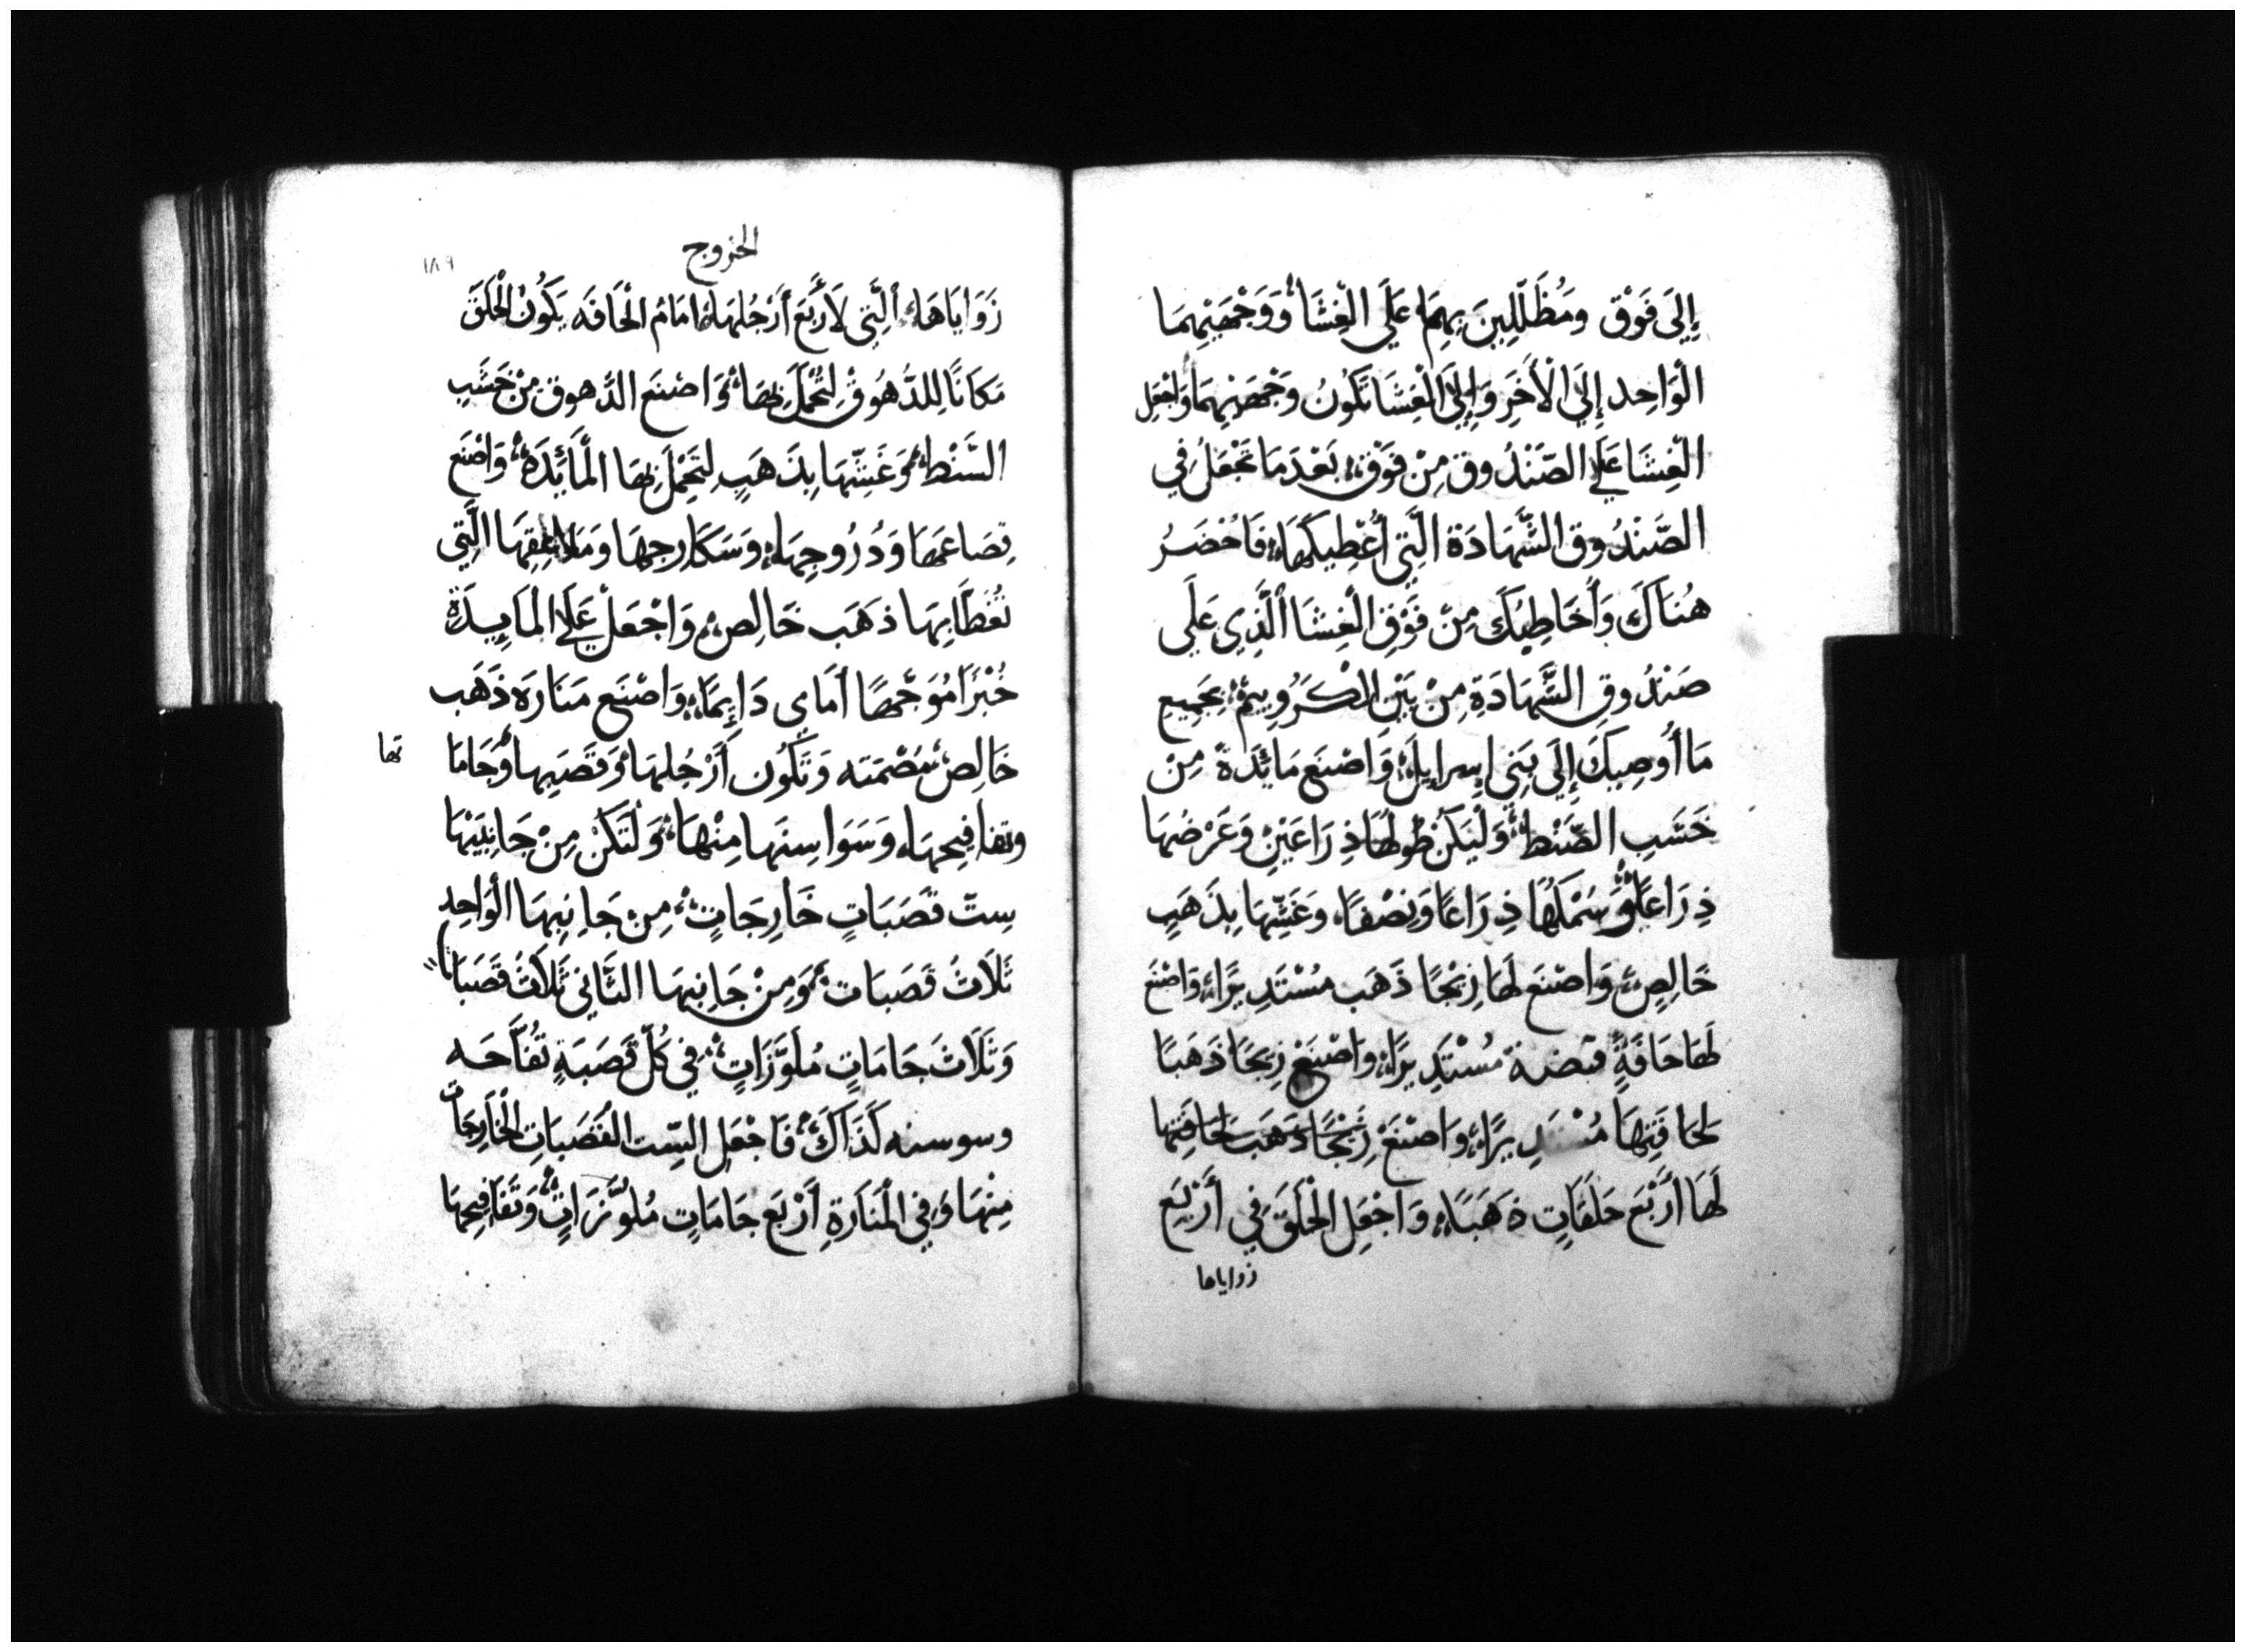 إِلَى فَوْق ومُظَلِّلِينَ بِهِمَا عَلَى الْغِشَاْ وَوَجْهَيْهِمَا
الْوَاحِد إِلَى الْأَخَرِ وَإِلَى الْغِشَا تَكُونُ وَجْهَيْهِمَا وَاجْعَلِ
الْغِشَا عَلَى الصَّنْدُوق مِنْ فَوْق بَعْدَ مَا تَجْعَلُ فِي
الصَّنْدُوق الشَّهَادَة الَّتِي أُعْطِيكَهَا فَاُحْضَرُ
هُنَاكَ وَأُخَاطِبُكَ مِنْ فَوْقِ الْغِشَا الَّذِي عَلَى
صَنْدُوقِ الشَّهَادَةِ مِنْ بَيْنِ الكَرُوبِيمْ بِجَمِيعِ
مَا أُوصِيكَ إِلَى بَنِي إسرايلَ وَاصْنَع مَائدَةً مِنْ
خَشَبِ الصَّنْط وَلْيَكُنْ طُولُهَا ذِرَاعَيْنِ وَعَرْضُهَا
ذِرَاعًا وَسَمْكُهَا ذِرَاعًا وَنِصْفًا وَغَشِّهَا بِذَهَبٍ
خَالِصٍ وَاصْنَع لَهَا زِيْجًا ذَهَب مُسْتَدِيرًا وَاصْنَع
لَهَا حَافَةً قبضة مُسْتَدِيرًا وَاصْنَعْ زِيجًا ذَهَبًا
لحَافَتِهَا مُسْتَدِيرًا وَاصْنَعْ زِيْجًا ذَهَب لحَافَتِها
لَهَا أَرْبَع حَلَقَاتٍ ذَهَبًا وَاجْعَلِ الْحَلَقَ فِي أَرْبَع
زواياها
الخروج
١٨٩
زَوَايَاهَا الَّتِي لَأَرْبَعِ أَرْجُلِهَا امَامُ الْحَافَه يَكُونُ الْحَلَقَ
مَكَانًا لِلدُّهُوقْ لِتُحْمَلَ بِهَا وَاصْنَع الدُّهوق مِنْ خَشَبِ
السَّنْط وَغَشِّهَا بِذَهَبٍ لِتَحْمِلَ بِهَا الْمَائِدَه وَاصْنَع
قِصَاعَهَا وَدُرُوجِهَا وَسَكَارِجهَا وَمَلَاعِقِهَا الَّتِي
تُغَطَا بِهَا ذَهَب خَالِص وَاجْعَلْ عَلَى الْمَايِدَةِ
خُبْزًا مُوَجَّهًا أمَامِي دَايِمًا وَاصْنَع مَنَارَه ذَهَب
خَالِص مُصْمَته وَتَكُون أَرْجُلهَا وَقَصَبِها وَجَامَا
تها
وتفافِيحهَا وَسَوَاسِنهَا مِنْهَا وَلْتَكُنْ مِنْ جَانِبَيْهَا
سِتّ قَصَبَاتٍ خَارِجَاتٍ مِنْ جَانِبِهَا الْوَاحِدِ
ثَلَاثُ قَصَبَات وَمِنْ جَانِبِهَا الثَّانِي ثَلَاثُ قَصَبَات
وَثَلَاثَ جَامَاتٍ مُلَوَّزَاتٍ فِي كُلِّ قَصَبَةٍ تُفَّاحَه
وسوسنه كَذَاكَ فَاجْعَل السِّت القَصَبَاتِ الْخَارِجَات
مِنْهَا وَفِي الْمَنَارَةِ أَرْبَع جَامَاتٍ مُلَوَّزَاتٍ وَتَفَافِيحهَا